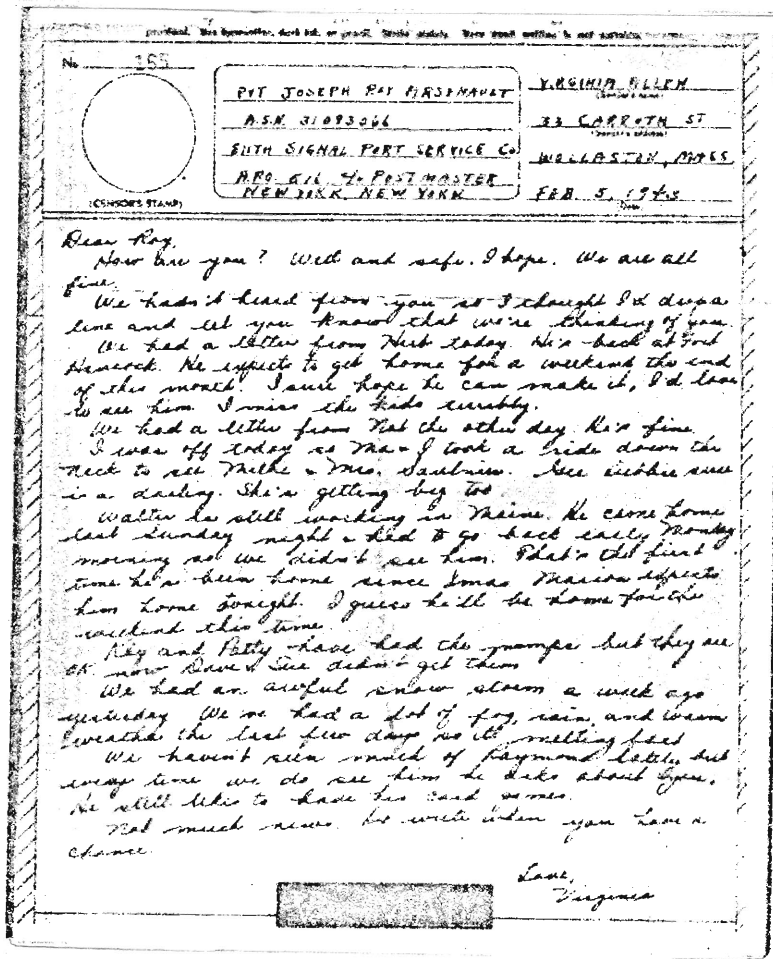 provided. Use typewriter, dark ink, or pencil. Write plainly. Very small writing is not suitable.
No. 165
(CENSOR'S STAMP)
PVT JOSEPH ROY ARSENAULT
A.S.N. 31093066
SIGNAL PORT SERVICE Co
A.P.O. 616 % POSTMASTER
NEW YORK, NEW YORK
VIRGINIA ALLEN
(Sender's name)
33 CARRUTH ST
(Sender's address)
WOLLASTON, MASS
FEB 5, 1943
(Date)
Dear Roy,
How are you? Well and safe. I hope. We are all
fine.
We hadn't heard from you so I thought I'd drop a
line and let you know that we're thinking of you.
We had a letter from Herb today. He's back at Fort
Hancock. He expects to get home for a weekend the end
of this month. I sure hope he can make it, I'd love
to see him. I miss the kids terribly.
We had a letter from Nat the other day. He's fine.
I was off today so Ma & I took a ride down the
neck to see & Mrs. Gee sure
is a darling. She's getting big too.
Walter is still working in Maine. He came home
last Sunday night & had to go back early Monday
morning so we didn't see him. That's the first
time he's been home since Xmas. Marion expects
him home tonight. I guess he'll be home for the
weekend this time.
Kay and Patty have had the mumps but they are
OK now Dave & Sue didn't get them
We had an awful snow storm a week ago
yesterday We've had a lot of fog, rain, and warm
weather the last few days so it's melting fast
We haven't seen much of Raymond lately but
every time we do see him he asks about you.
He still likes to have his card games.
Not much news. So write when you have a
chance.
Love,
Virginia